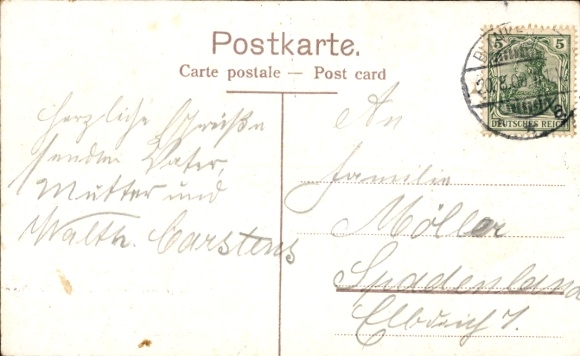 Postkarte.
Carte postale — Post card
5 5
DEUTSCHES REICH
Herzliche Grüße
senden Vater,
Mutter und
Walth. Carstens
An
Familie
Möller
Spadenland
Elbdeich 7.